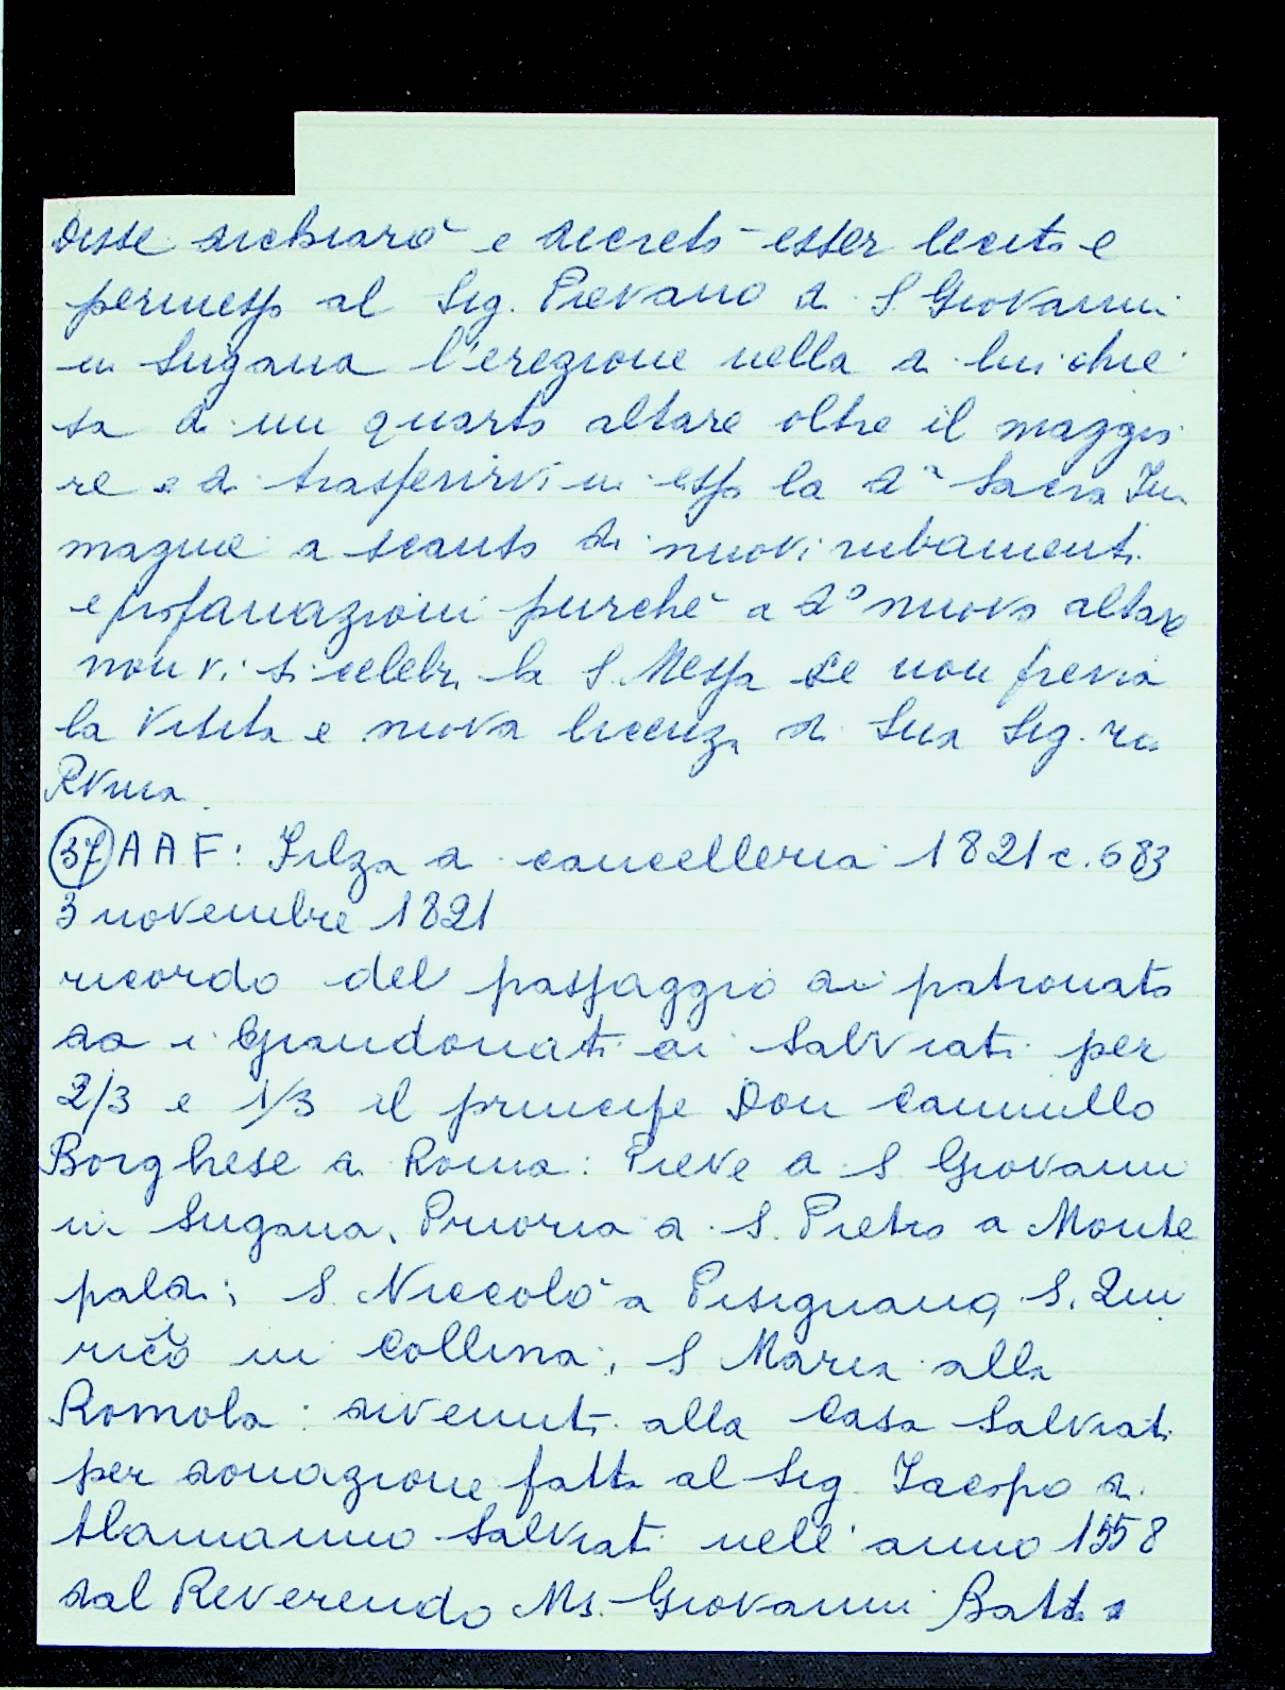 Disse dichiarò e decretò esser lecito e
permesso al Sig. Pievano di S. Giovanni
in Sugana l'erezione nella di lui chie
sa di un quarto altare oltre il maggio
re e di trasferirvi in esso la dª Sacra Im
magine a scanso di nuovi rubamenti
e profanazioni purché a dº nuovo altare
non vi si celebri la S. Messa se non previa
la visita e nuova licenza di Sua Sig.ria
Rvma.
37 A A F: Filza di cancelleria 1821 c. 683
3 novembre 1821
ricordo del passaggio di patronato
da i Grandonati ai Salviati per
2/3 e 1/3 il principe Don Cammillo
Borghese di Roma: Pieve di S. Giovanni
in Sugana, Prioria di S. Pietro a Monte
paldi; S. Niccolò a Pisignano, S. Qui
rico in Collina; S Maria alla
Romola: divenuti alla Casa Salviati
per donazione fatta al Sig. Iacopo di
Alamanno Salviati nell'anno 1558
dal Reverendo Ms. Giovanni Batta